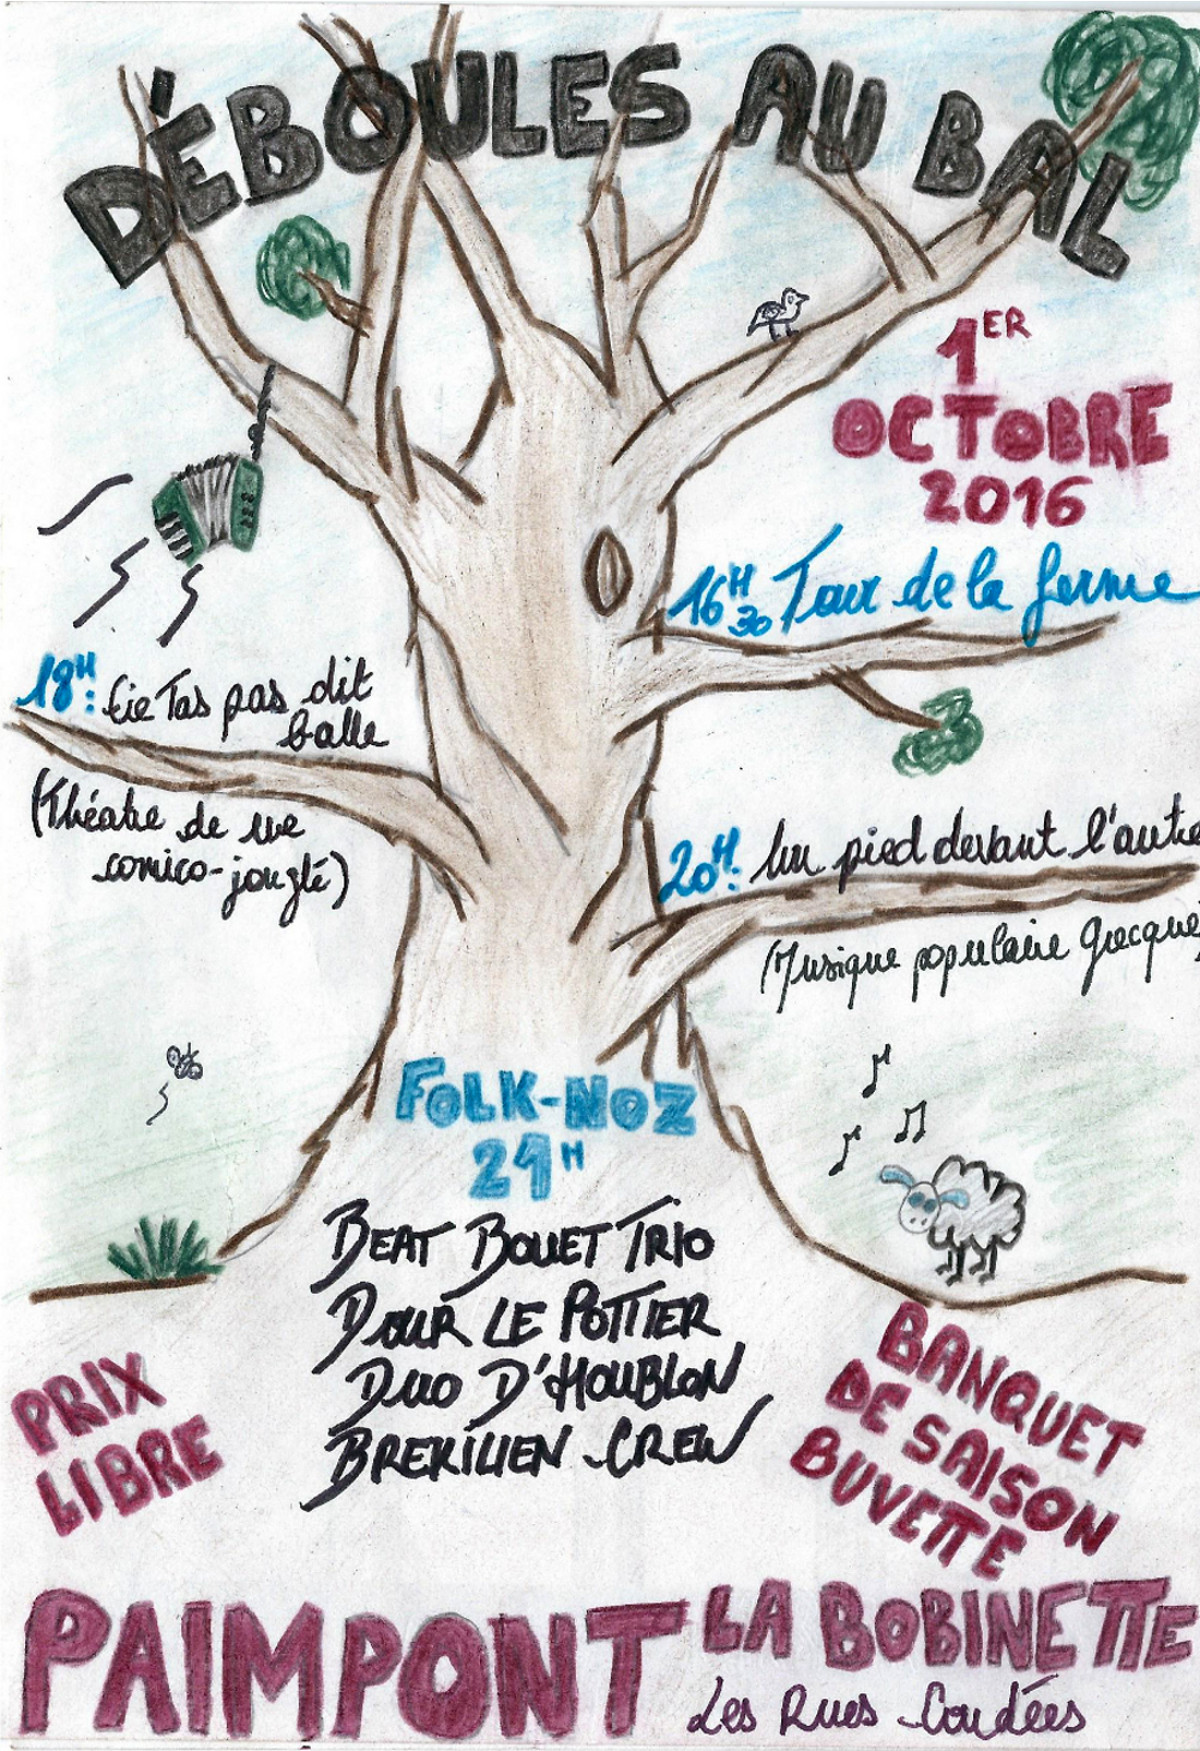 DÉBOULES AU BAL
1ER
OCTOBRE
2016
16H30 Tour de la ferme
18H: Cie Tas pas dit
balle
(Théatre de rue
comico-jonglé)
20H: Un pied devant l'autre
(Musique populaire Grecque)
FOLK-NOZ
21H
BEAT BOUET TRIO
DOUR LE POTTIER
DUO D'HOUBLON
BREKILIEN CREW
PRIX
LIBRE
BANQUET
DE SAISON
BUVETTE
PAIMPONT LA BOBINETTE
Les Rues Coudées